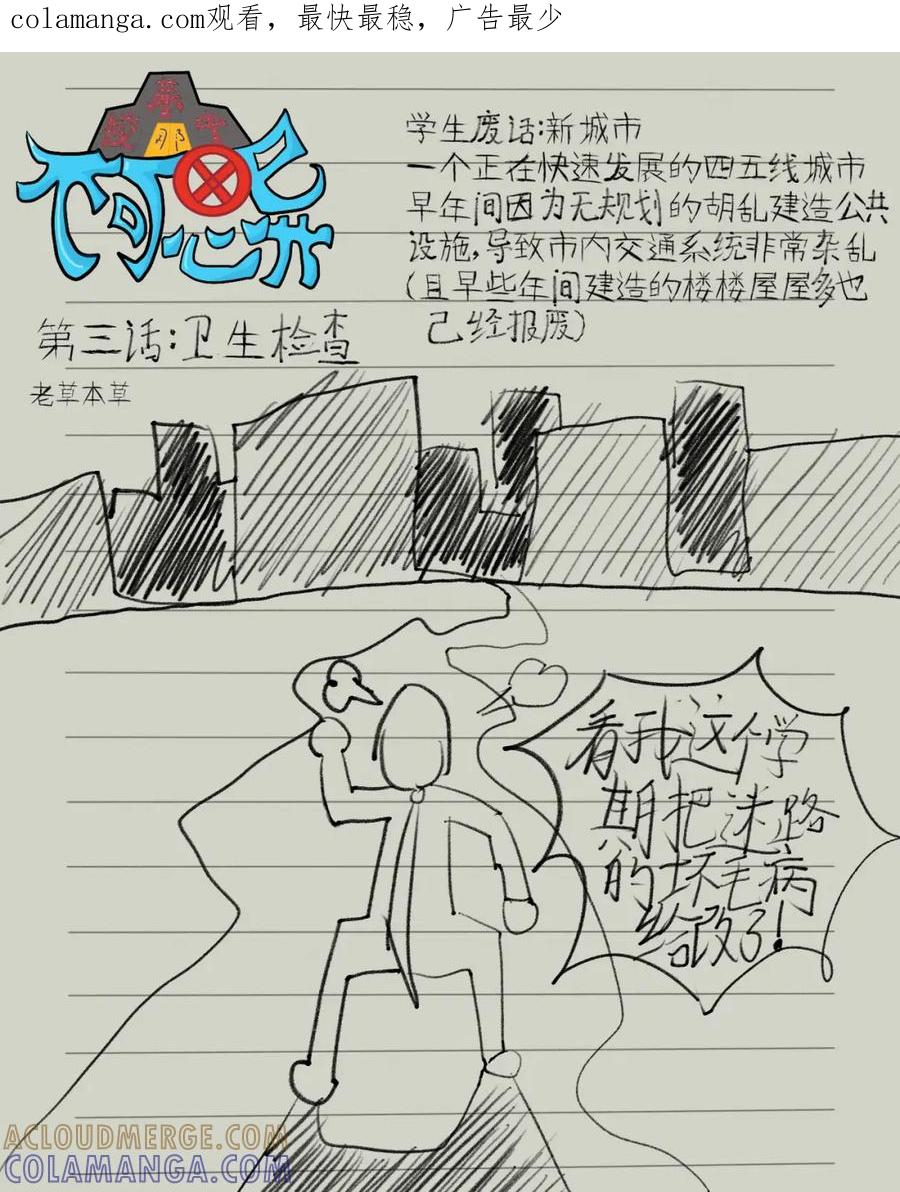 colamanga.com观看，最快最稳，广告最少
学生废话:新城市
一个正在快速发展的四五线城市
早年间因为无规划的胡乱建造公共
设施,导致市内交通系统非常杂乱
(且早些年间建造的楼楼屋屋多也
己经报废)
第三话:卫生检查
老草本草
看我这个学
期把迷路
的坏毛病
给改了!
ACLOUDMERGE.COM
COLAMANGA.COM